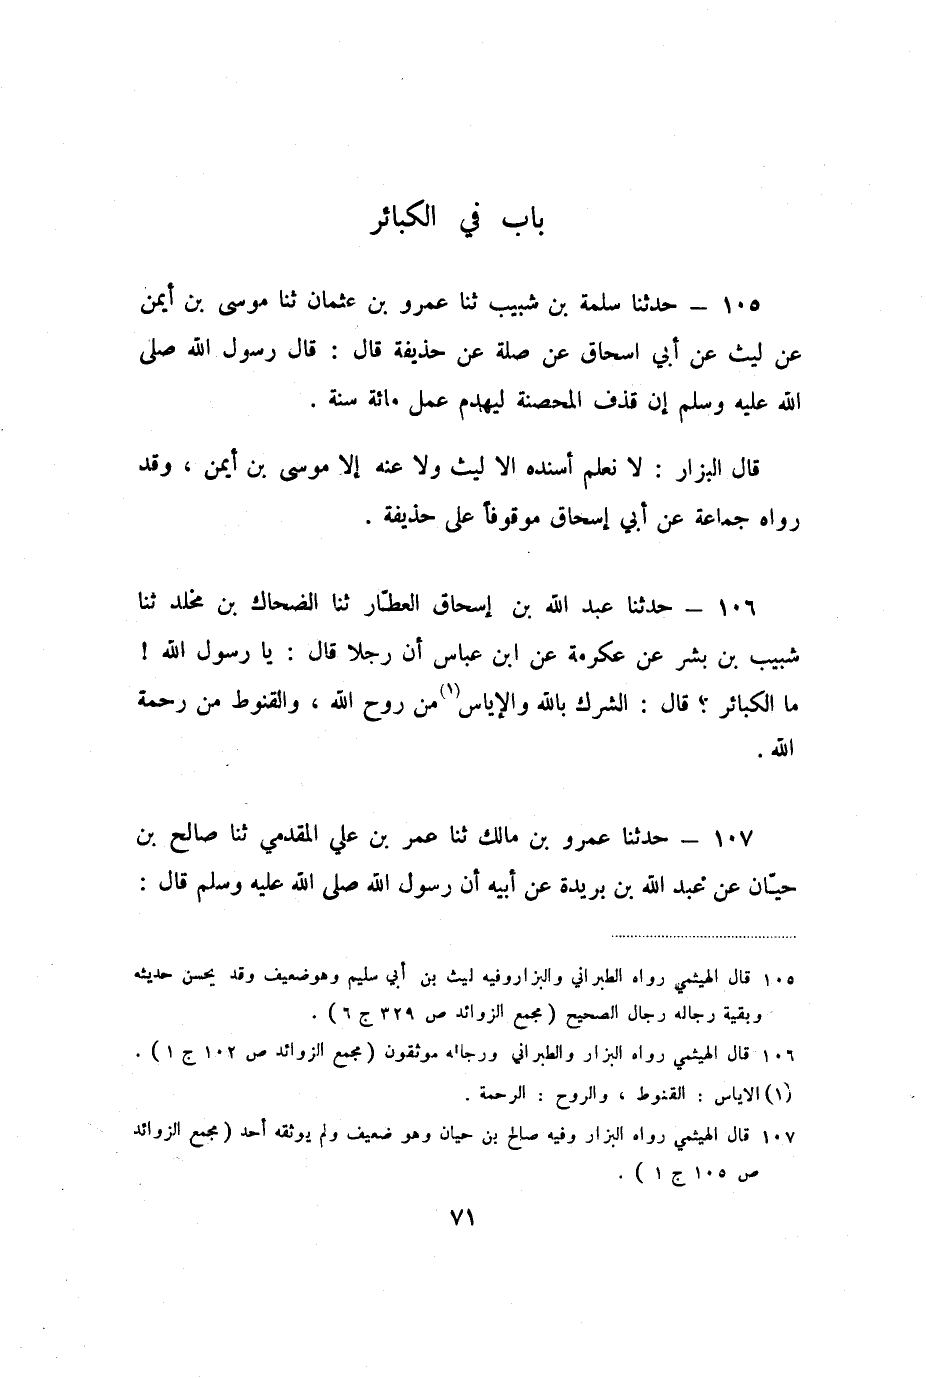 باب في الكبائر
١٠٥ ـ حدثنا سلمة بن شبيب ثنا عمرو بن عثمان ثنا موسى بن أيمن
عن ليث عن أبي اسحاق عن صلة عن حذيفة قال : قال رسول الله صلى
الله عليه وسلم إن قذف المحصنة ليهدم عمل مائة سنة .
قال البزار : لا نعلم أسنده الا ليث ولا عنه إلا موسى بن أيمن ، وقد
رواه جماعة عن أبي إسحاق موقوفاً على حذيفة .
١٠٦ ـ حدثنا عبد الله بن إسحاق العطّار ثنا الضحاك بن مخلد ثنا
شبيب بن بشر عن عكرمة عن ابن عباس أن رجلا قال : يا رسول الله !
ما الكبائر ؟ قال : الشرك بالله والإياس(١) من روح الله ، والقنوط من رحمة
الله .
١٠٧ ـ حدثنا عمرو بن مالك ثنا عمر بن علي المقدمي ثنا صالح بن
حيّان عن عبد الله بن بريدة عن أبيه أن رسول الله صلى الله عليه وسلم قال :
١٠٥ قال الهيثمي رواه الطبراني والبزاروفيه ليث بن أبي سليم وهوضعيف وقد يحسن حديثه
وبقية رجاله رجال الصحيح ( مجمع الزوائد ص ٣٢٩ ج ٦ ) .
١٠٦ قال الهيثمي رواه البزار والطبراني ورجاله موثقون ( مجمع الزوائد ص ١٠٢ ج ١ ) .
(١) الاياس : القنوط ، والروح : الرحمة .
١٠٧ قال الهيثمي رواه البزار وفيه صالح بن حيان وهو ضعيف ولم يوثقه أحد ( مجمع الزوائد
ص ١٠٥ ج ١ ) .
٧١